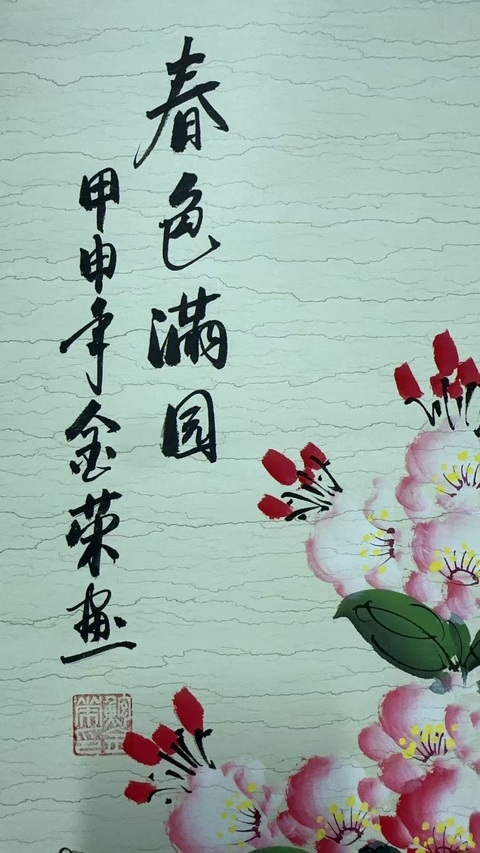 春色滿园
甲申年金荣画